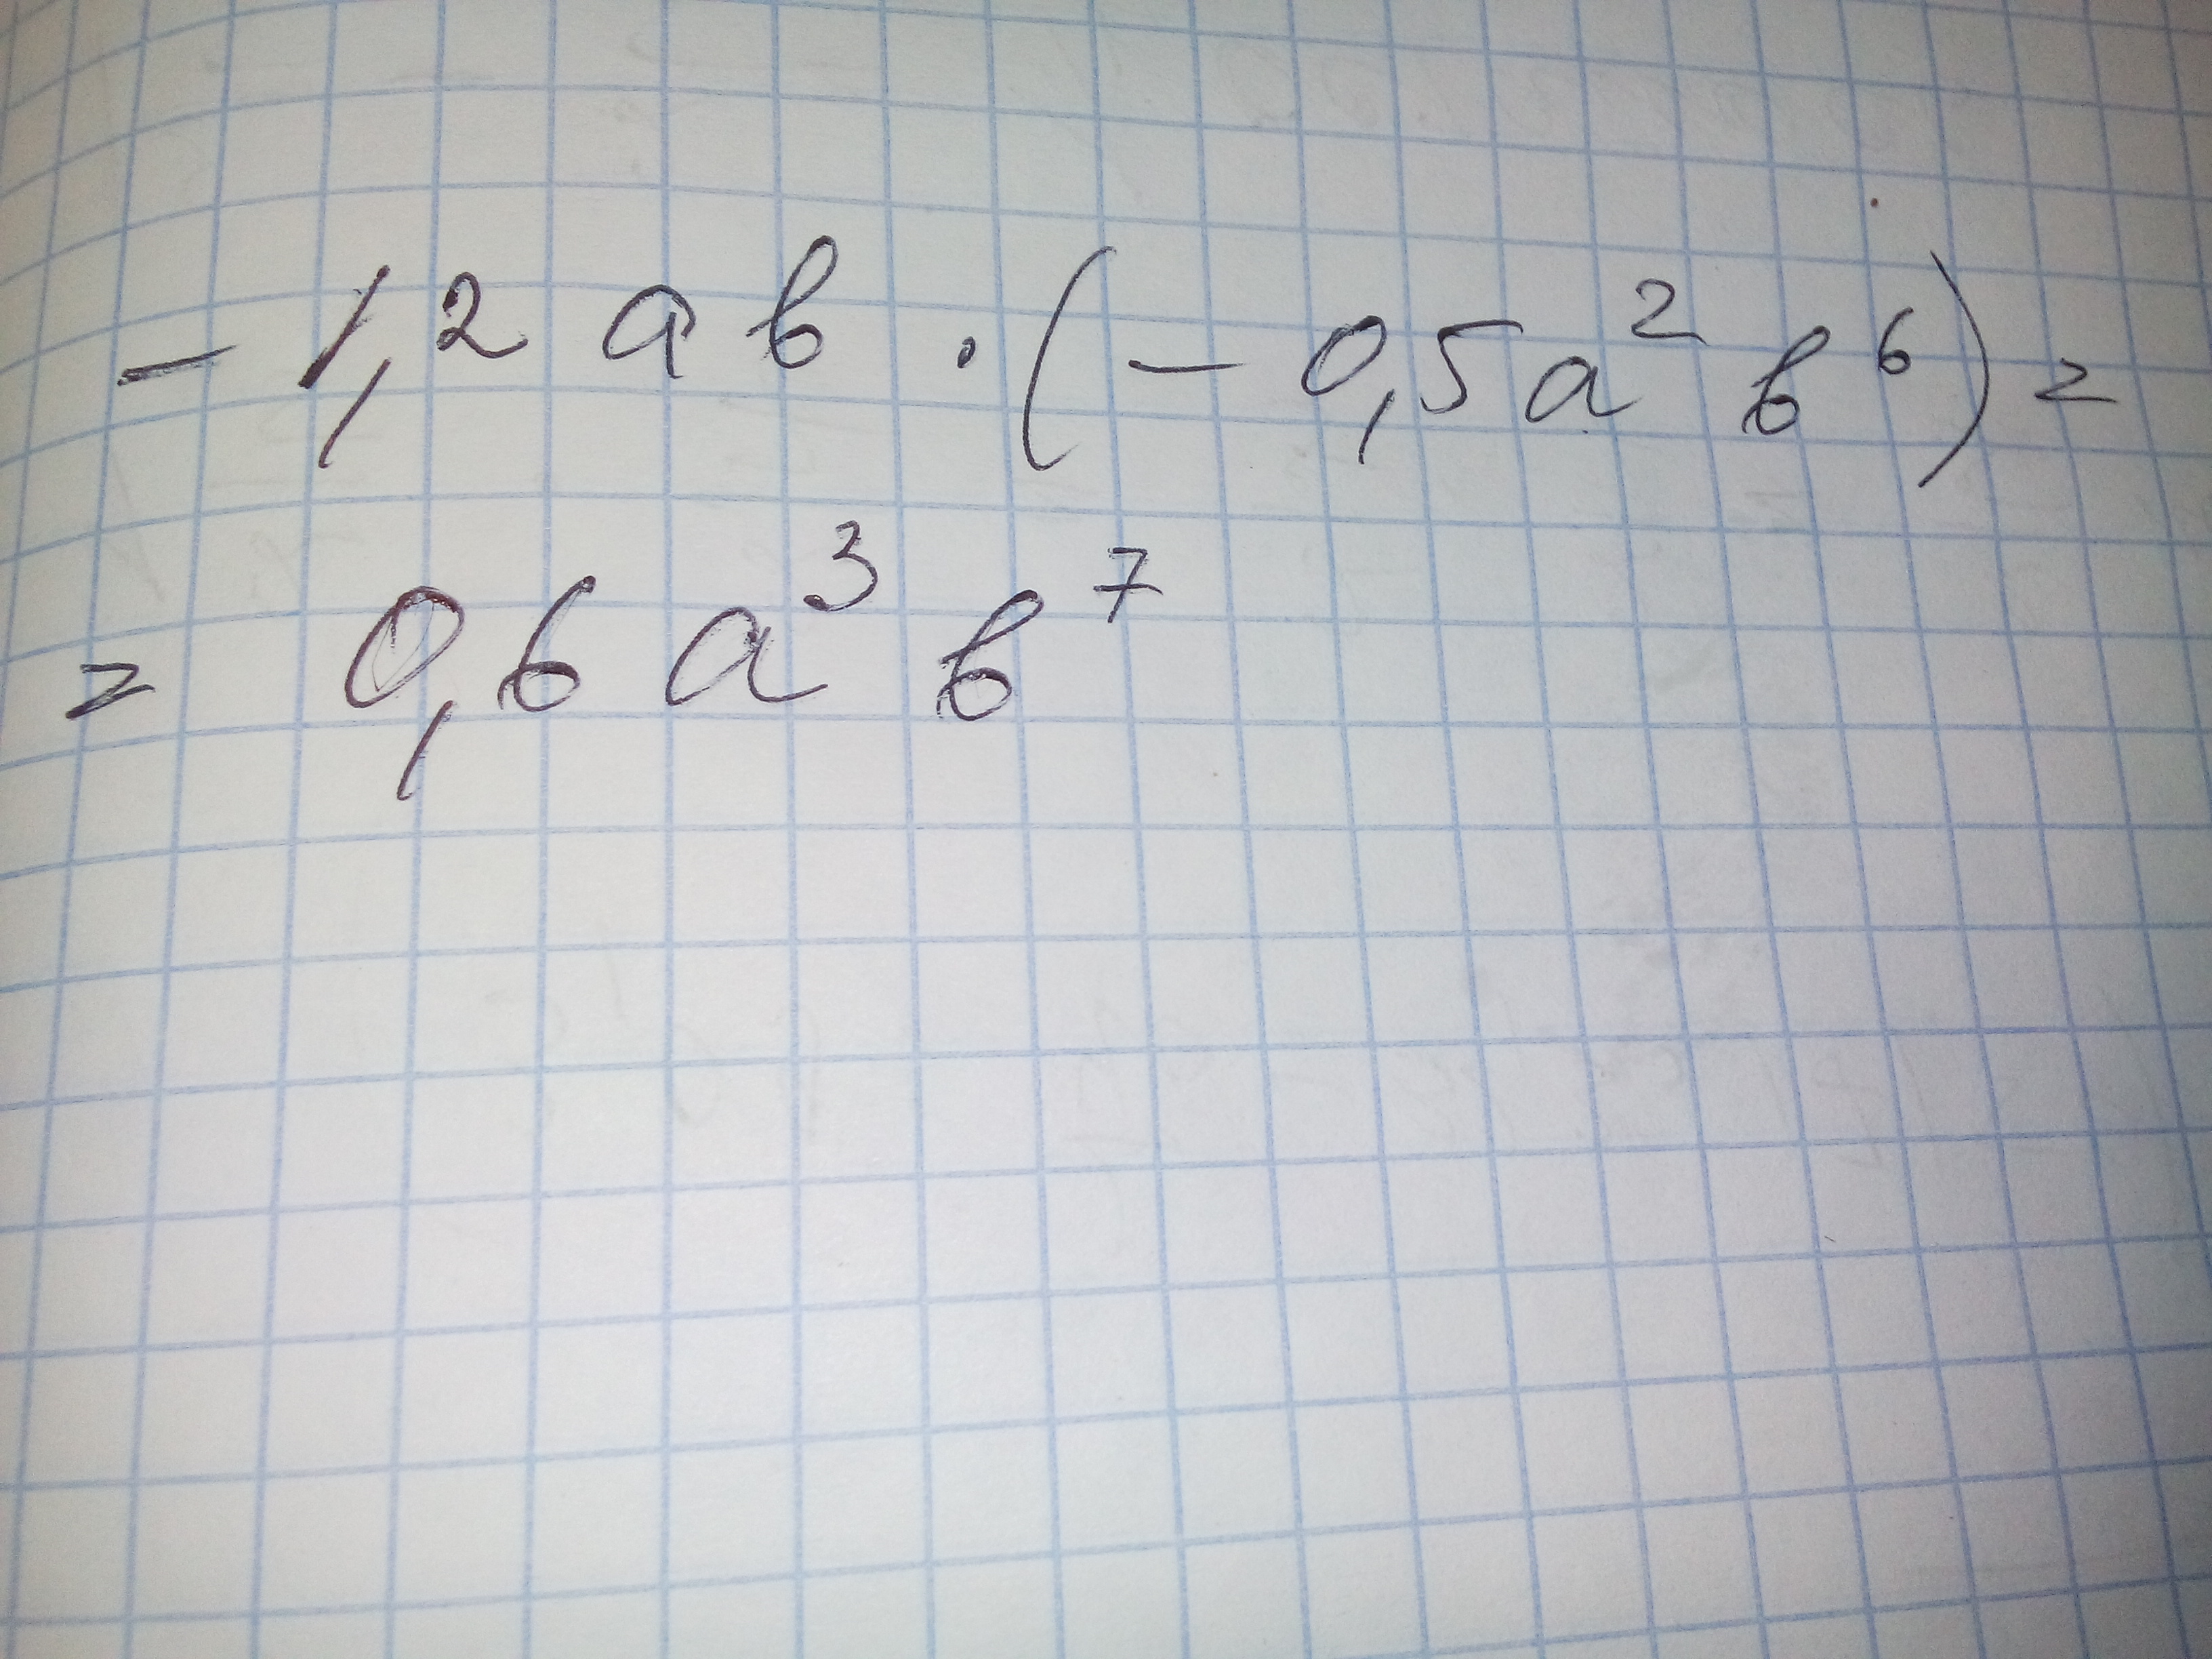 - 1,2 a b · (- 0,5a² b⁶) =
= 0,6 a³ b⁷